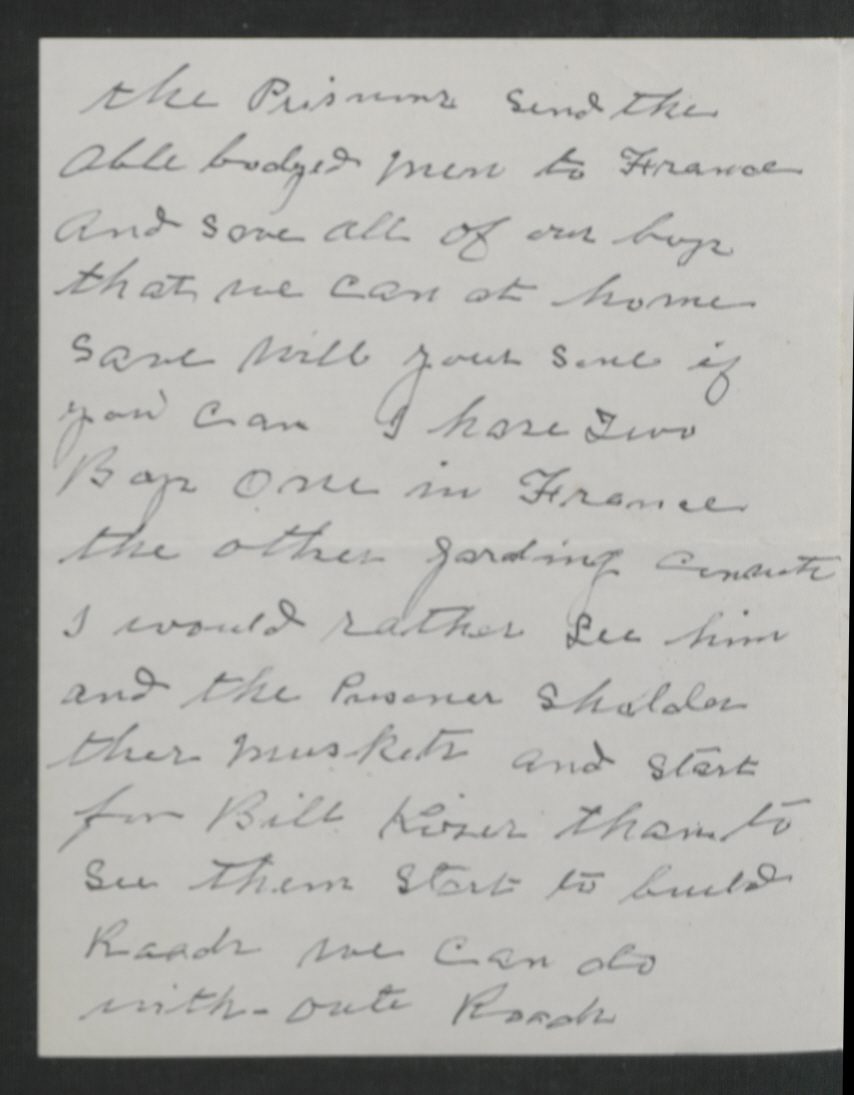 the Prisunr send the
able bodyed men to France
And save all of our boys
that we can at home
Save will your Sine if
you can I have Two
Boys One in France
the other garding
I would rather See him
and the Prisoner Sholder
ther muskets and start
for Bill Kiser than to
See them start to build
Roads we can do
with-oute Roads